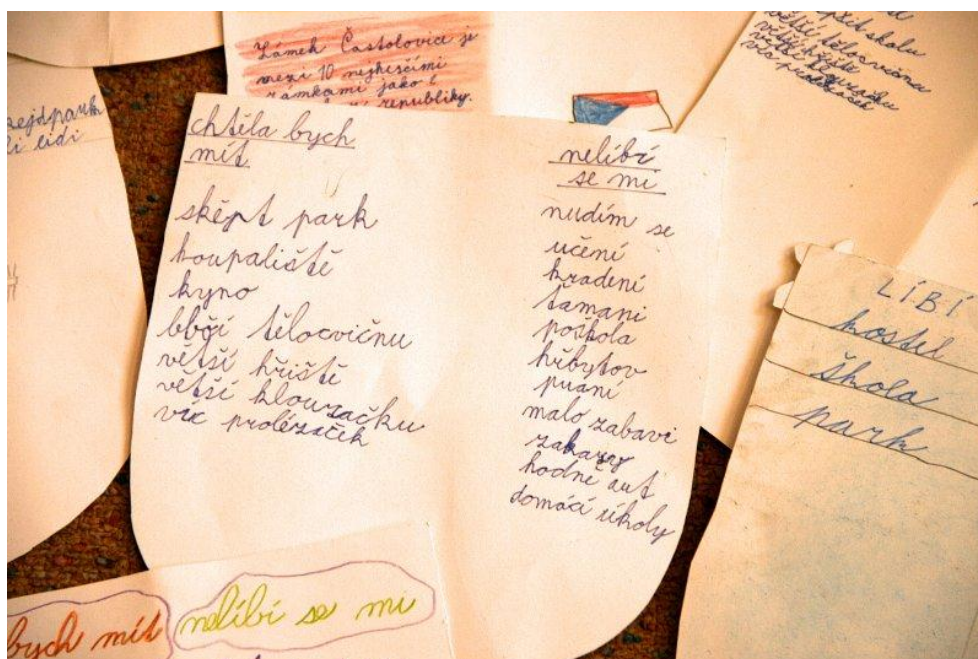 Zámek Častolovice je
mezi 10 nejhesčími
zámkami jako l
republiky.
školu
větší tělocvična
větší hřiště
větší
sejdpark
lidi
chtěla bych
mít
sképt park
koupaliště
kyno
tělocvičnu
větší hřiště
vetší klouzačku
víc prolézaček
nelíbí
se mi
nudím se
učení
kradení
poškola
hřbytov
praní
malo zabavi
zakazy
hodně aut
domácí úkoly
LÍBÍ
kostel
škola
park
bych mít
nelíbí se mi